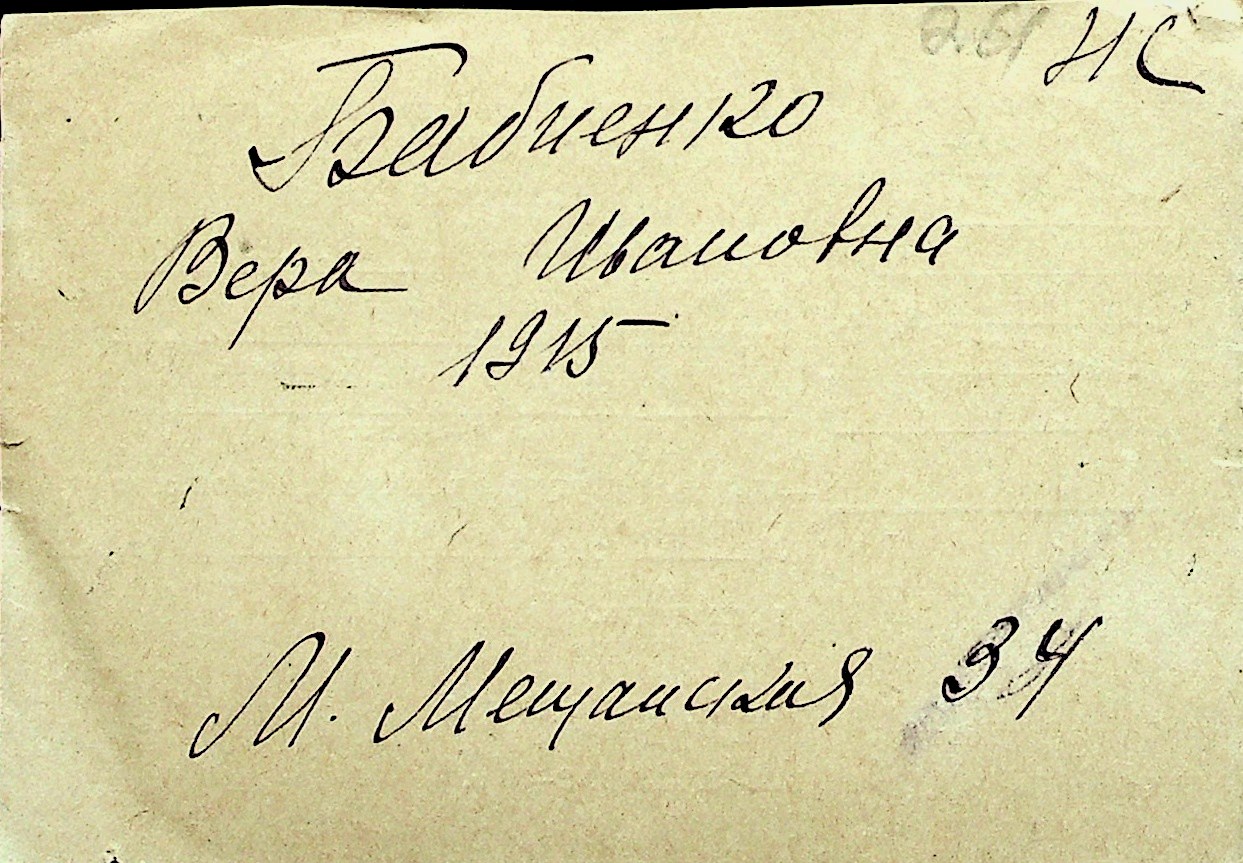 НС
Бабиенко
Вера Ивановна
1915
М. Мещанская 34